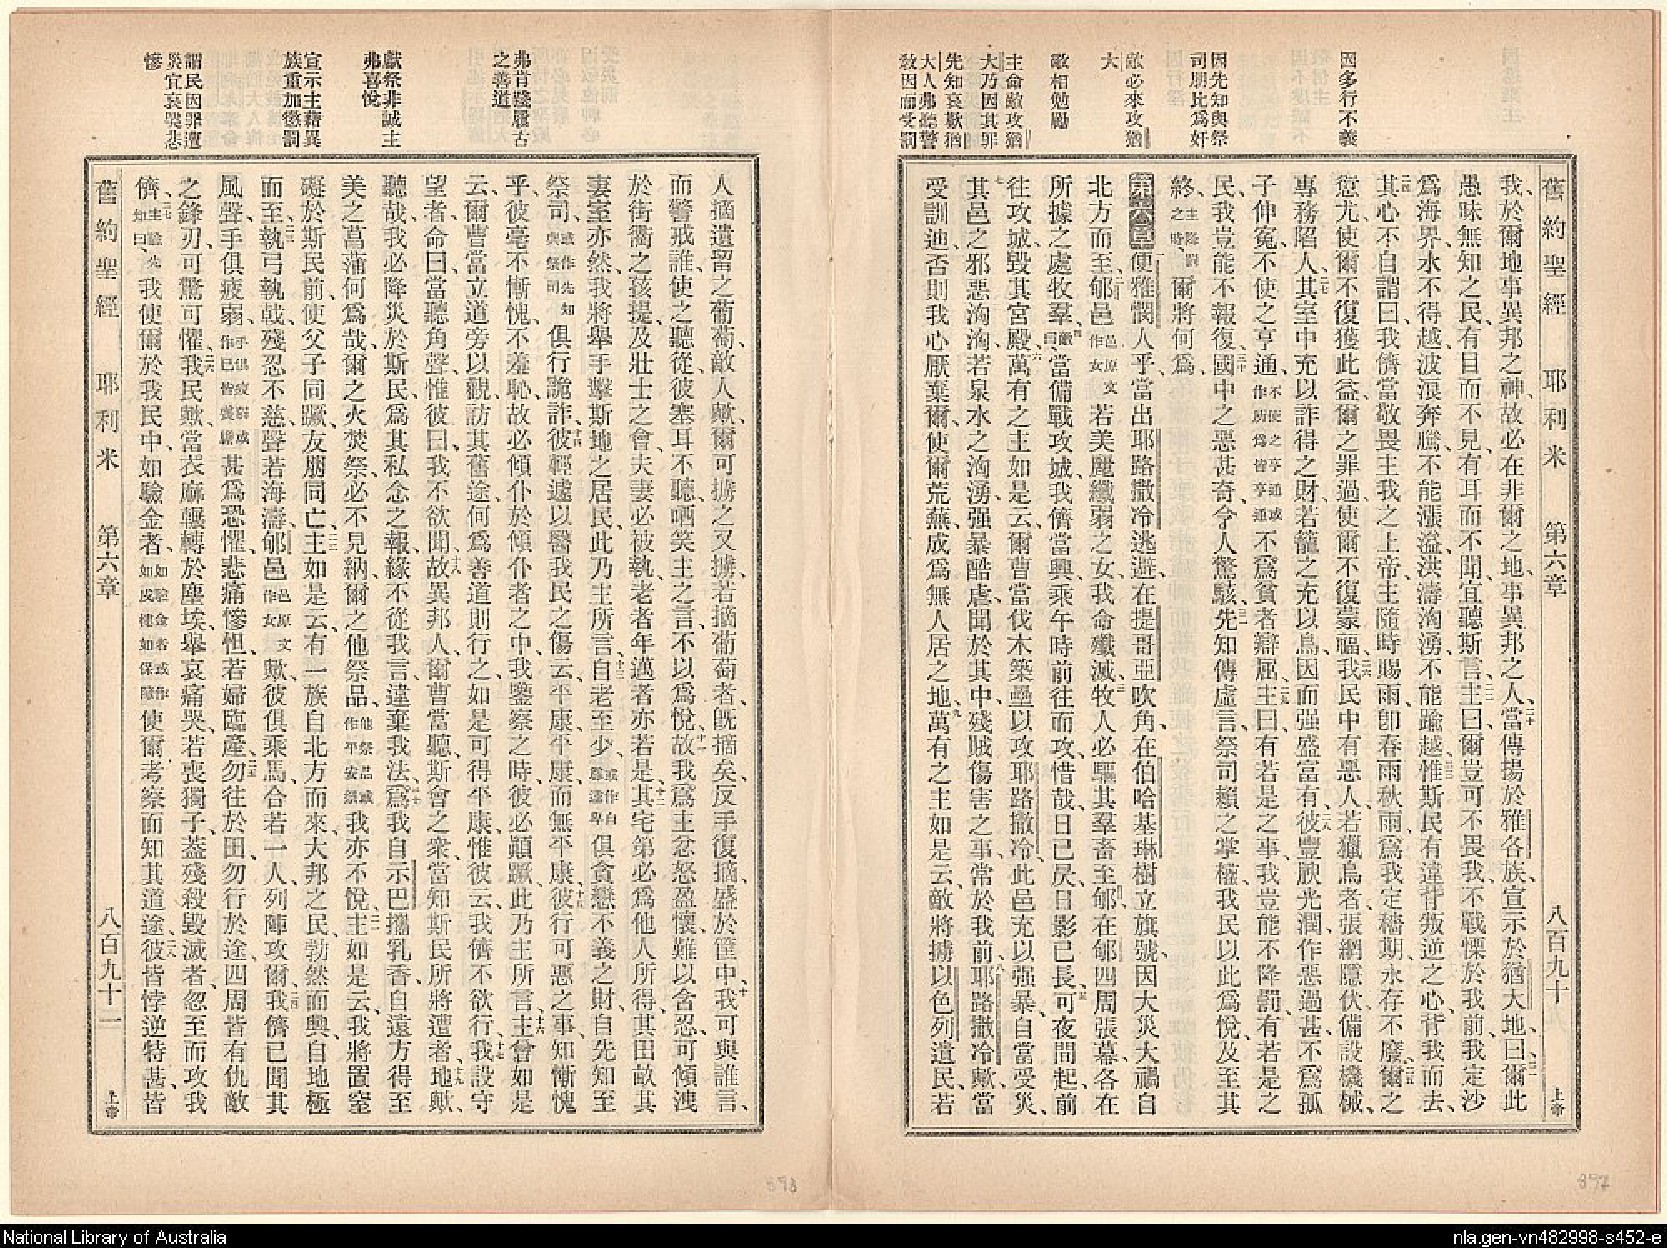 因多行不義
因先知與祭
司朋比為奸
敵必來攻猶
大
敵相勉勵
主命敵攻猶
大乃因其罪
先知哀歎猶
大人弗聽警
教因而受罰
舊約聖經 耶利米 第六章 八百九十 上帝
我於爾地事異邦之神故必在非爾之地事異邦之人二十當傳揚於雅各族宣示於猶大地曰二一爾此
愚昧無知之民有目而不見有耳而不聞宜聽斯言二二主曰爾豈可不畏我不戰慄於我前我定沙
為海界水不得越波浪奔騰不能漲溢洪濤洶湧不能踰越二三惟斯民有違背叛逆之心背我而去
二四其心不自謂曰我儕當敬畏主我之上帝主隨時賜雨卽春雨秋雨為我定穡期永存不廢二五爾之
愆尤使爾不復獲此益爾之罪過使爾不復蒙福二六我民中有惡人若獵鳥者張網隱伏備設機械
專務陷人二七其室中充以詐得之財若籠之充以鳥因而强盛富有二八彼豐腴光潤作惡過甚不為孤
子伸冤不使之亨通不使之亨通或作所為皆亨通不為貧者辯屈二九主曰有若是之事我豈能不降罰有若是之
民我豈能不報復三十國中之惡甚奇令人驚駭三一先知傳虛言祭司賴之掌權我民以此為悅及至其
終主降罰之時爾將何為
第六章便雅憫人乎當出耶路撒冷逃避在提哥亞吹角在伯哈基琳樹立旗號因大災大禍自
北方而至二郇邑邑原文作女若美麗纖弱之女我命殲滅三牧人必驅其羣畜至郇在郇四周張幕各在
所據之處牧羣四敵曰當備戰攻城我儕當興乘午時前往而攻惜哉日已昃日影已長五可夜間起前
往攻城毀其宮殿六萬有之主如是云爾曹當伐木築壘以攻耶路撒冷此邑充以强暴自當受災
七其邑之邪惡洶洶若泉水之洶湧强暴酷虐聞於其中殘賊傷害之事常於我前八耶路撒冷歟當
受訓迪否則我心厭棄爾使爾荒蕪成為無人居之地九萬有之主如是云敵將擄以色列遺民若
弗肯踐履古
之善道
獻祭非誠主
弗喜悅
宣示主藉異
族重加懲罰
謂民因罪遭
災宜哀哭悲
慘
人摘遺留之葡萄敵人歟爾可擄之又擄若摘葡萄者旣摘矣反手復摘盛於筐中十我可與誰言
而警戒誰使之聽從彼塞耳不聽哂笑主之言不以為悅十一故我為主忿怒盈懷難以含忍可傾洩
於街衢之孩提及壯士之會夫妻必被執老者年邁者亦若是十二其宅第必為他人所得其田畝其
妻室亦然我將舉手擊斯地之居民此乃主所言十三自老至少或作自尊至卑俱貪戀不義之財自先知至
祭司或作先知與祭司俱行詭詐十四彼輕遽以醫我民之傷云平康平康而無平康十五彼行可惡之事知慚愧
乎彼毫不慚愧不羞恥故必傾仆於傾仆者之中我鑒察之時彼必顛蹶此乃主所言十六主曾如是
云爾曹當立道旁以觀訪其舊途何為善道則行之如是可得平康惟彼云我儕不欲行十七我設守
望者命曰當聽角聲惟彼曰我不欲聞十八故異邦人爾曹當聽斯會之衆當知斯民所將遭者十九地歟
聽哉我必降災於斯民為其私念之報緣不從我言違棄我法二十為我自示巴攜乳香自遠方得至
美之菖蒲何為哉爾之火焚祭必不見納爾之他祭品他祭品或作平安祭我亦不悅二一主如是云我將置窒
礙於斯民前使父子同蹶友朋同亡二二主如是云有一族自北方而來大邦之民勃然而興自地極
而至二三執弓執戟殘忍不慈聲若海濤郇邑邑原文作女歟彼俱乘馬合若一人列陣攻爾二四我儕已聞其
風聲手俱疲弱手俱疲弱或作已皆萎靡甚為恐懼悲痛慘怛若婦臨產二五勿往於田勿行於途四周皆有仇敵
之鋒刃可驚可懼二六我民歟當衣麻輾轉於塵埃舉哀痛哭若喪獨子蓋殘殺毀滅者忽至而攻我
儕二七主諭先知曰我使爾於我民中如驗金者如驗金者或作如戍樓如保障使爾考察而知其道途二八彼皆悖逆特甚皆
舊約聖經 耶利米 第六章 八百九十一 上帝
898
897
National Library of Australia
nla.gen-vn482998-s452-e